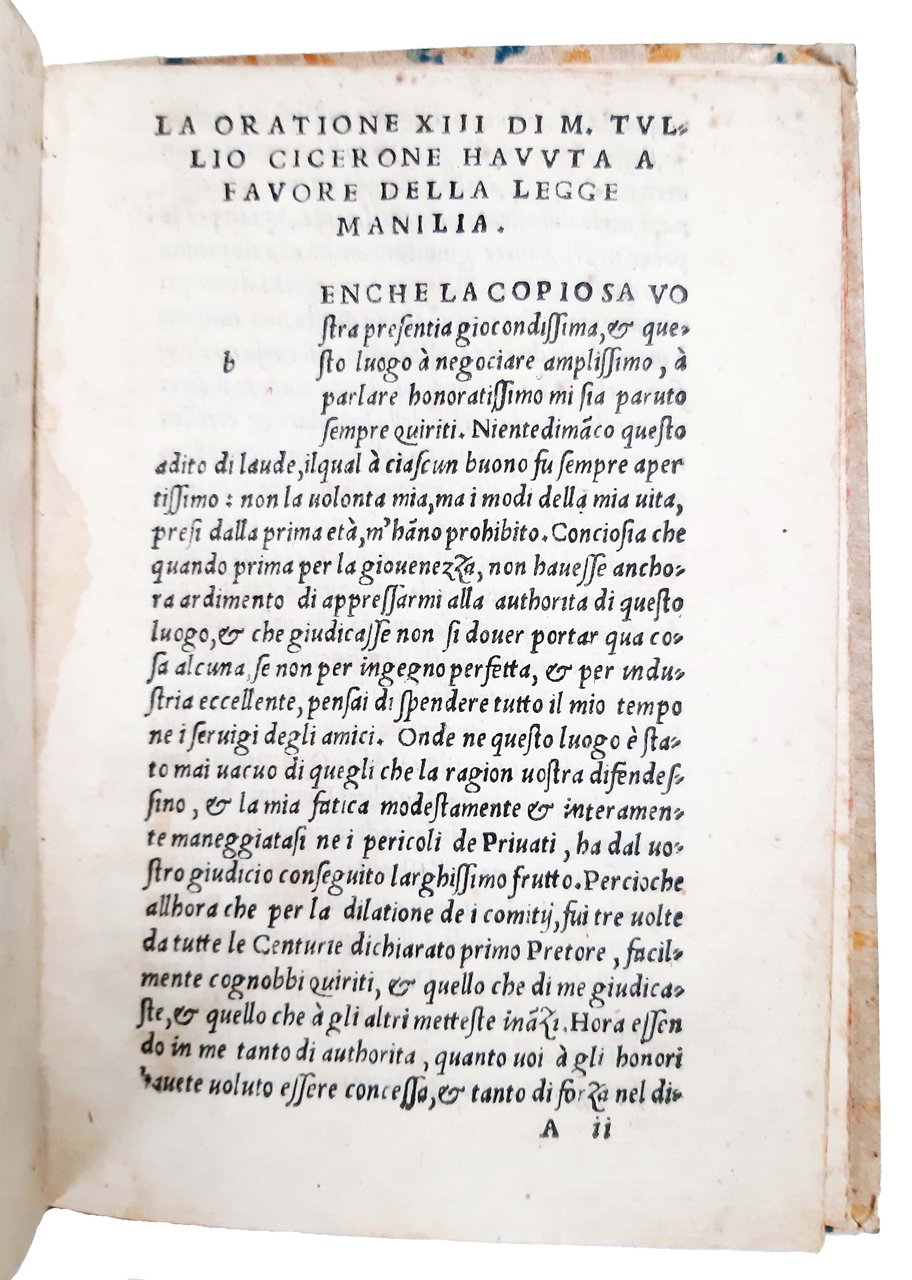 LA ORATIONE XIII DI M. TVL-
LIO CICERONE HAVVTA A
FAVORE DELLA LEGGE
MANILIA.
b
ENCHE LA COPIOSA VO
ſtra preſentia giocondiſſima, & que-
ſto luogo à negociare ampliſſimo, à
parlare honoratiſſimo mi ſia paruto
ſempre Quiriti. Nientedimãco queſto
adito di laude, ilqual à ciaſcun buono fu ſempre aper
tiſſimo: non la uolonta mia, ma i modi della mia uita,
preſi dalla prima età, m'hãno prohibito. Concioſia che
quando prima per la giouenezza, non haueſſe ancho-
ra ardimento di appreſſarmi alla authorita di queſto
luogo, & che giudicaſſe non ſi douer portar qua co-
ſa alcuna, ſe non per ingegno perfetta, & per indu-
ſtria eccellente, penſai di ſpendere tutto il mio tempo
ne i ſeruigi degli amici. Onde ne queſto luogo è ſta-
to mai uacuo di quegli che la ragion uoſtra difendeſ-
ſino, & la mia fatica modeſtamente & interamen-
te maneggiataſi ne i pericoli de Priuati, ha dal uo-
ſtro giudicio conſeguito larghiſſimo frutto. Percioche
allhora che per la dilatione de i comitij, fui tre uolte
da tutte le Centurie dichiarato primo Pretore, facil-
mente cognobbi Quiriti, & quello che di me giudica-
ſte, & quello che à gli altri metteſte inãzi. Hora eſſen
do in me tanto di authorita, quanto uoi à gli honori
hauete uoluto eſſere conceſſa, & tanto di forza nel di-
A ii